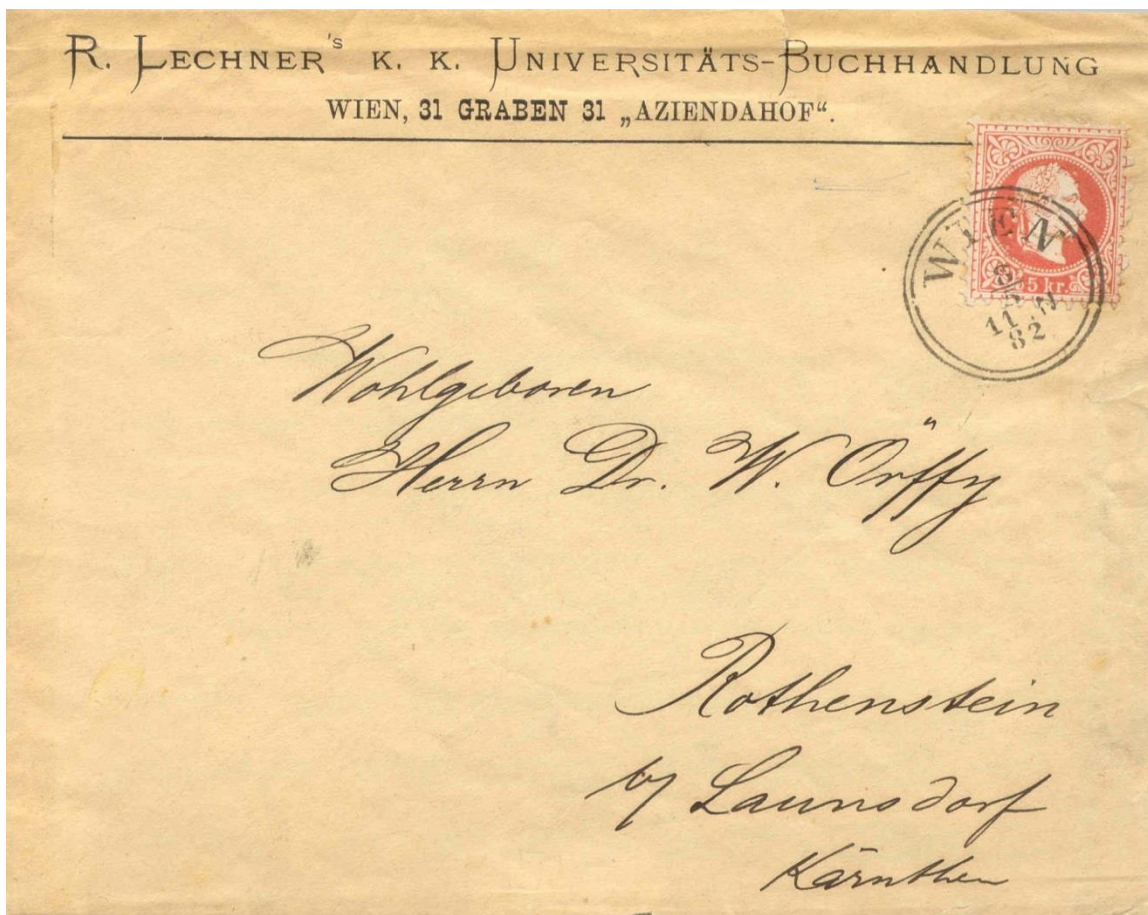 R. LECHNER's K. K. UNIVERSITÄTS-BUCHHANDLUNG
WIEN, 31 GRABEN 31 „AZIENDAHOF“.
5 kr.
WIEN
8/5
11.V.
82
Wohlgeboren
Herrn Dr. W. Örffy
Rothenstein
b/ Launsdorf
Kärnthen